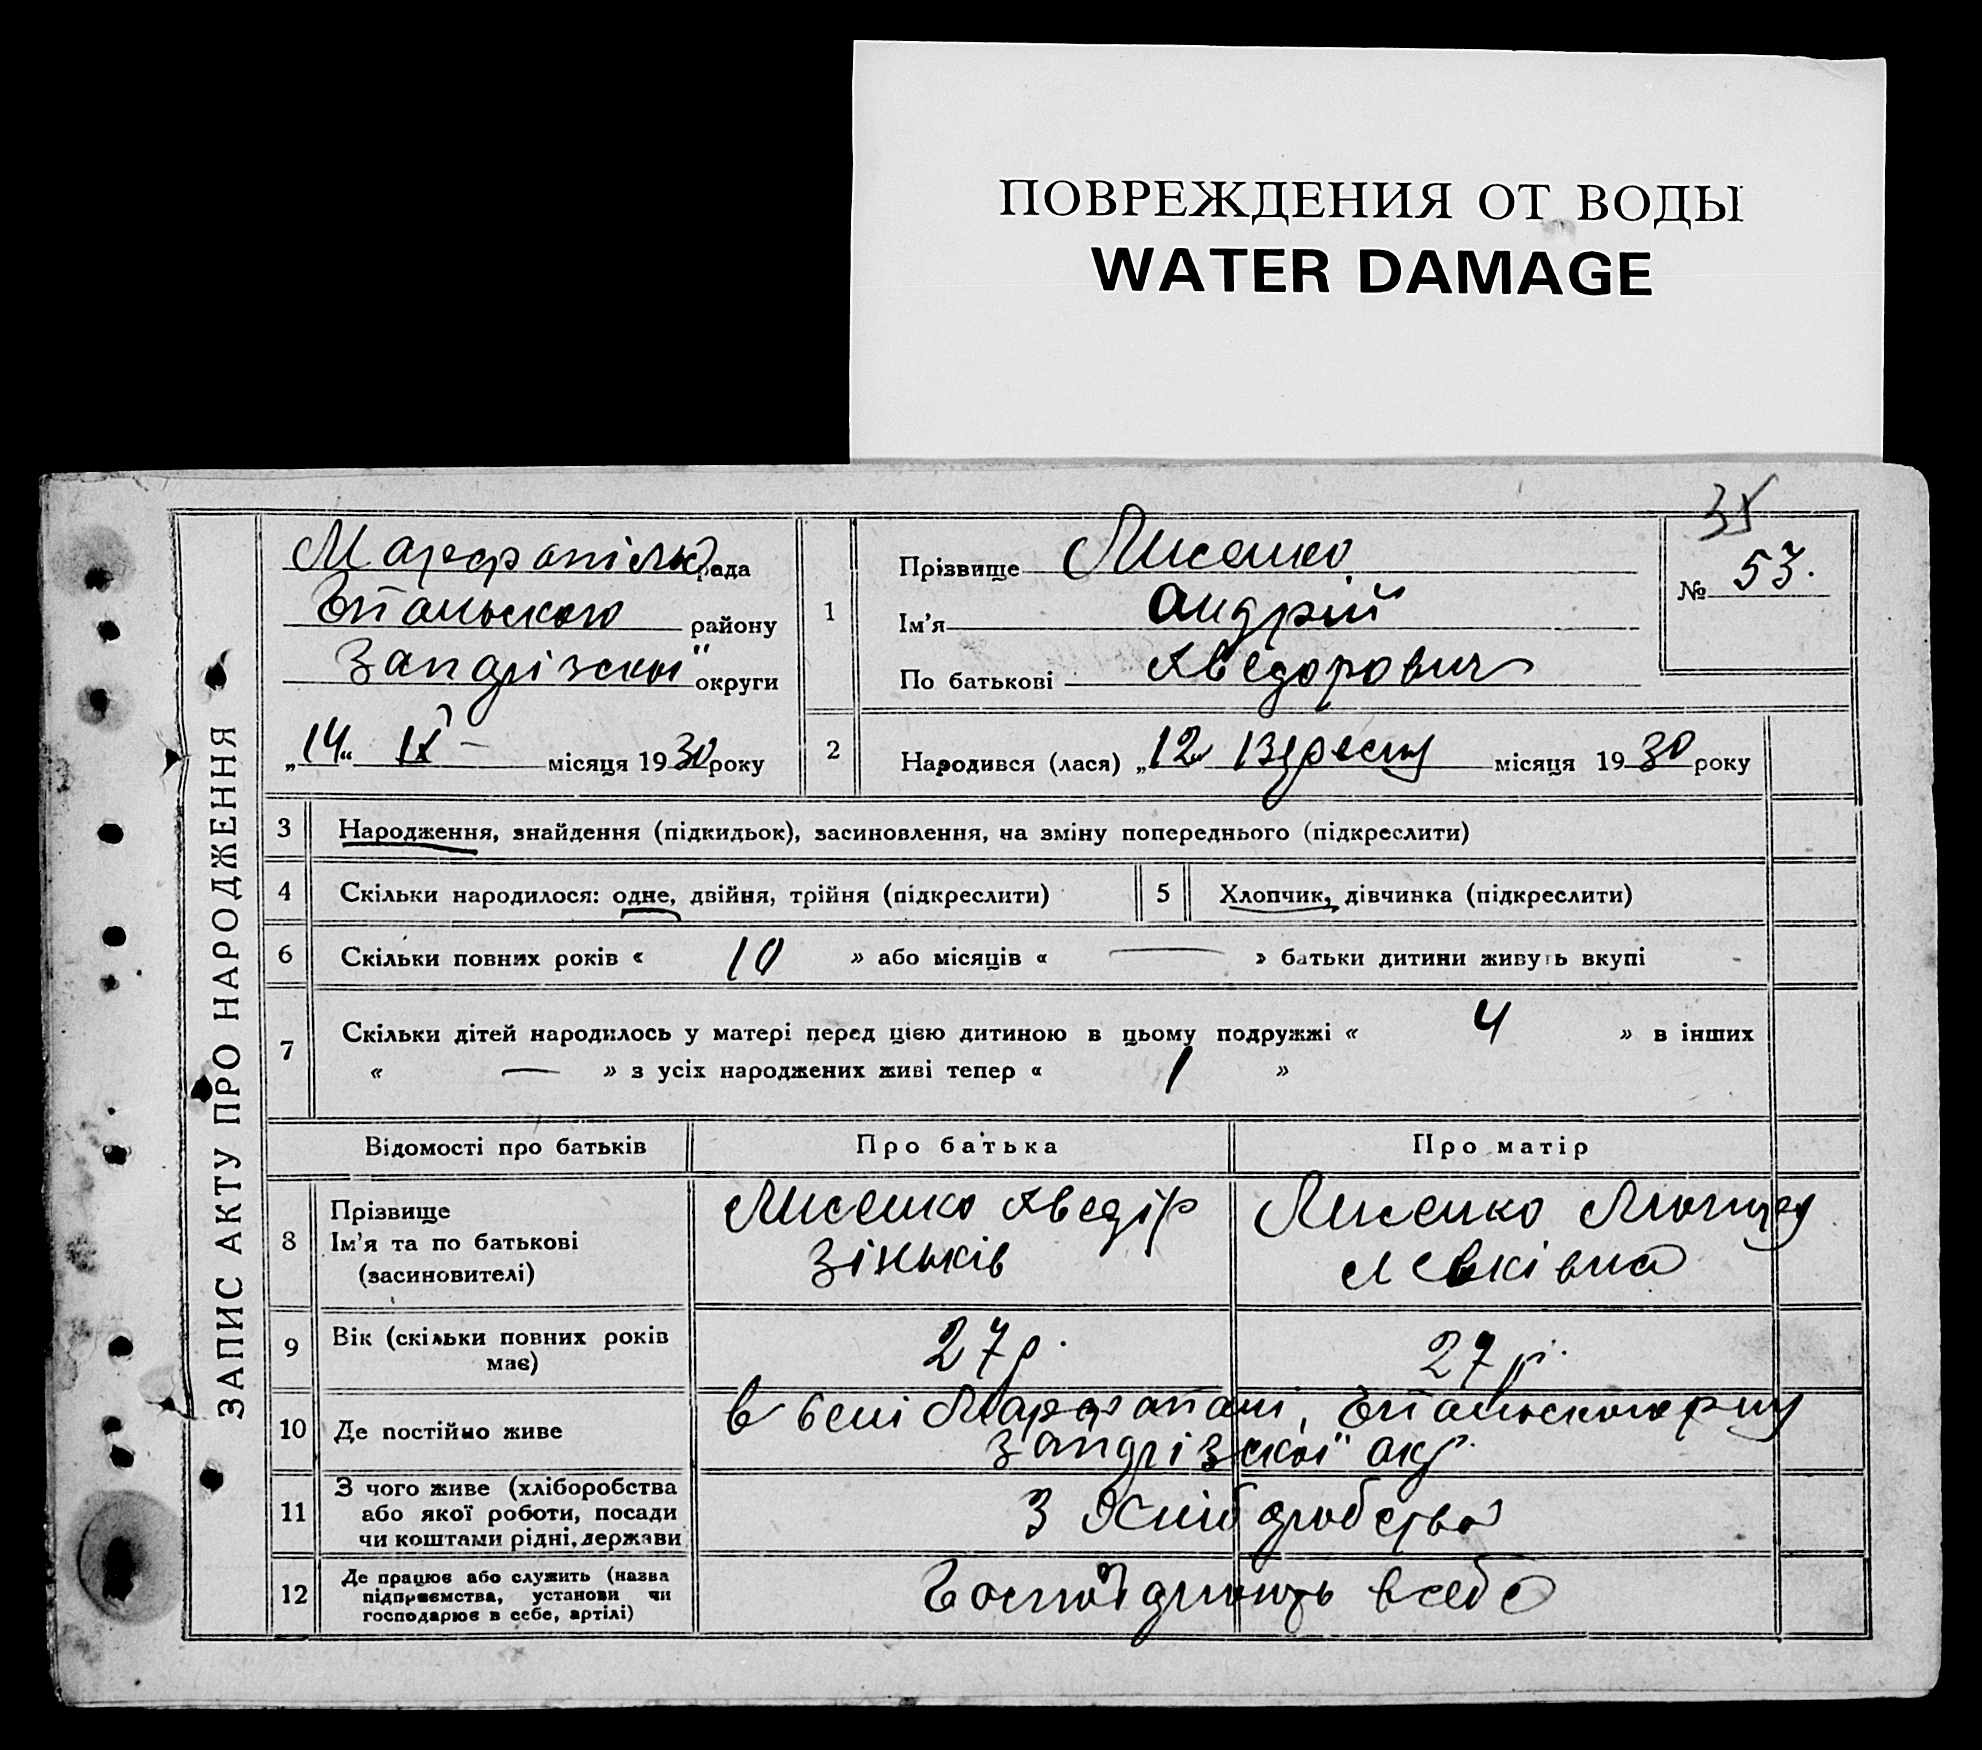 ПОВРЕЖДЕНИЯ ОТ ВОДЫ
WATER DAMAGE
35
ЗАПИС АКТУ ПРО НАРОДЖЕННЯ
рада
району
округи
„14“ IX - місяця 1930 року
1
Прізвище Лисенко
Ім’я Андрій
По батькові Хведорович
№ 53.
2
Народився (лася) „12“ Вересня місяця 1930 року
3 Народження, знайдення (підкидьок), засиновлення, на зміну попереднього (підкреслити)
4 Скільки народилося: одне, двійня, трійня (підкреслити)
5 Хлопчик, дівчинка (підкреслити)
6 Скільки повних років « 10 » або місяців « — » батьки дитини живуть вкупі
7 Скільки дітей народилось у матері перед цією дитиною в цьому подружжі « 4 » в інших
« — » з усіх народжених живі тепер « 1 »
Відомості про батьків Про батька Про матір
8 Прізвище
Ім’я та по батькові
(засиновителі)
Лисенко Хведір
Зіньків
Лисенко
Левківна
9 Вік (скільки повних років
має)
27 р.
27 р.
10 Де постійно живе
в селі
окр.
11 З чого живе (хліборобства
або якої роботи, посади
чи коштами рідні, держави
З Хліборобства
12 Де працює або служить (назва
підприємства, установи чи
господарює в себе, артілі)
в себе